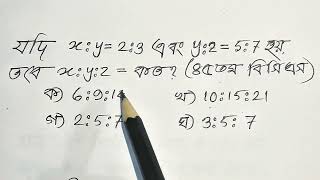 যদি x:y=2:3 এবং y:z=5:7 হয়
তবে x:y:z = কত? (৪৫তম বিসিএস)
ক) 6:9:14 খ) 10:15:21
গ) 2:5:7 ঘ) 3:5:7